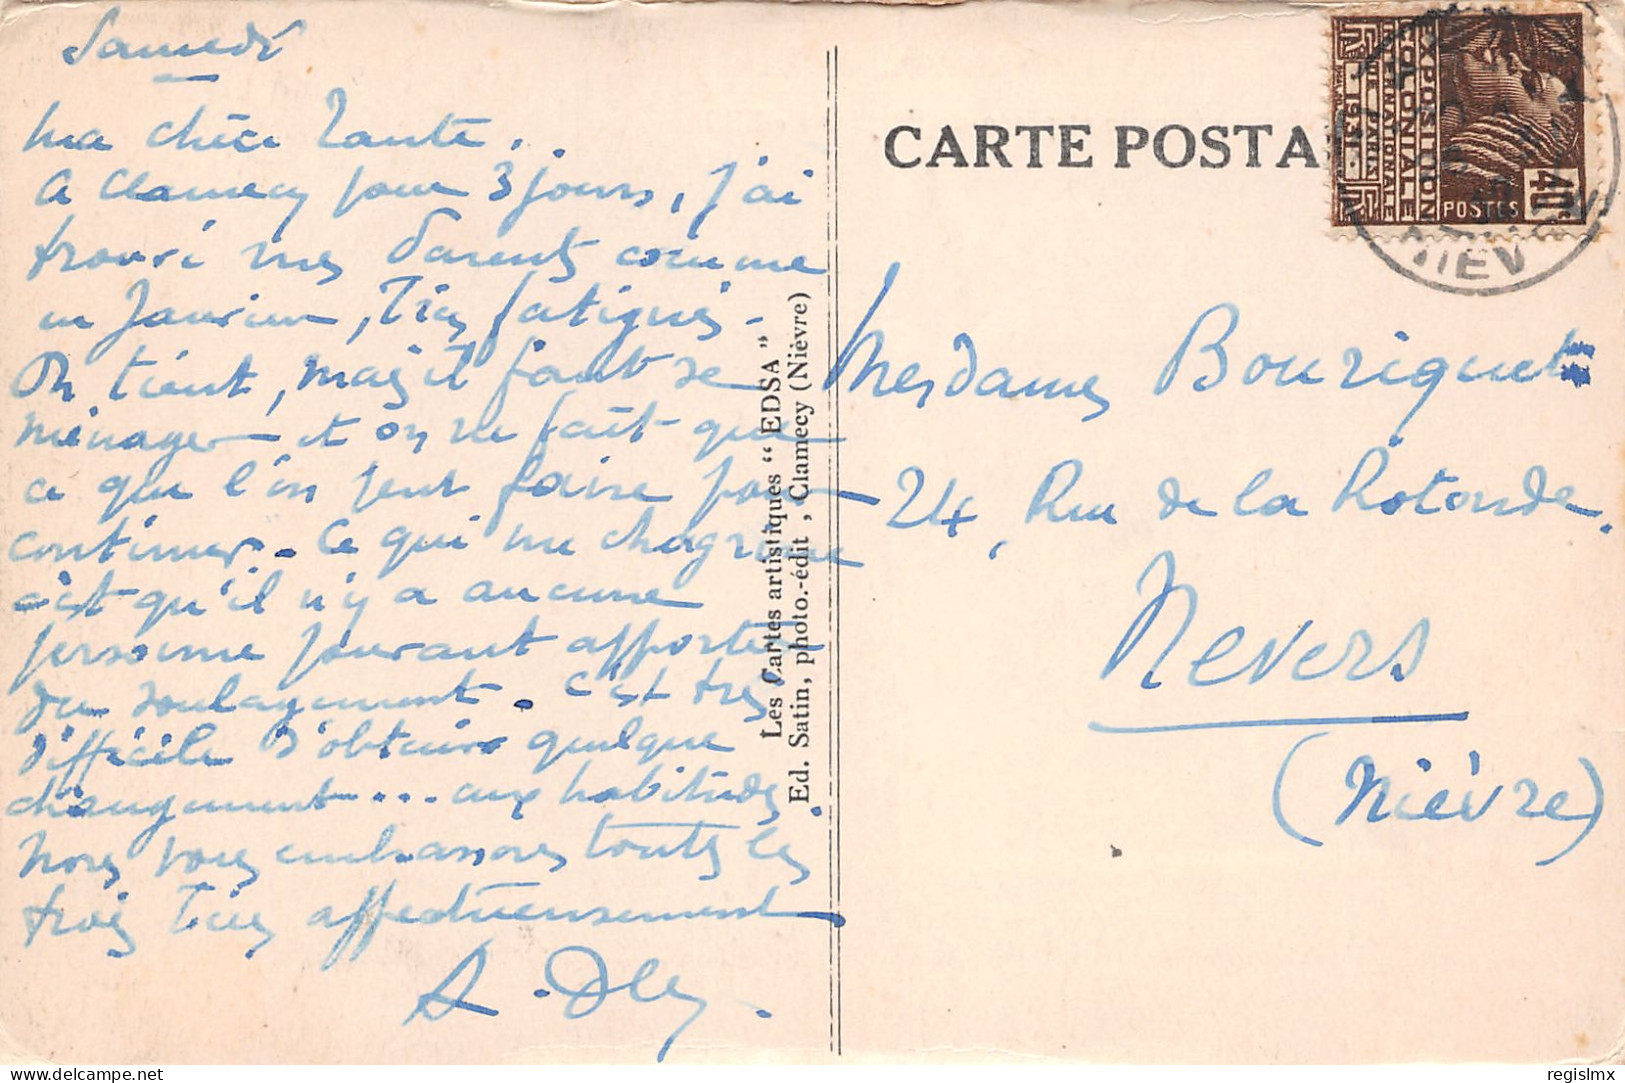 Samedi
Ma chère Tante.
A Clamecy pour 3 jours, j'ai
trouvé mes Parents comme
en Janvier, Très fatigués -
On tient, mais il faut se
ménager - et on ne fait que
ce que l'on peut faire pour
continuer. Ce qui me chagrine
c'est qu'il n'y a aucune
personne pouvant apporter
du soulagement. C'est très
difficile d'obtenir quelque
changement... aux habitudes.
Nous vous embrassons toutes les
trois Très affectueusement
Les Cartes artistiques "EDSA"
Ed. Satin, photo.-édit, Clamecy (Nièvre)
CARTE POSTA
EXPOSITION
COLONIALE
INTERNATIONALE
PARIS
1931
RF
POSTES
40c
NIEV
Mesdames Bouriquet
24, Rue de la Rotonde.
Nevers
(Nièvre)
delcampe.net
regislmx